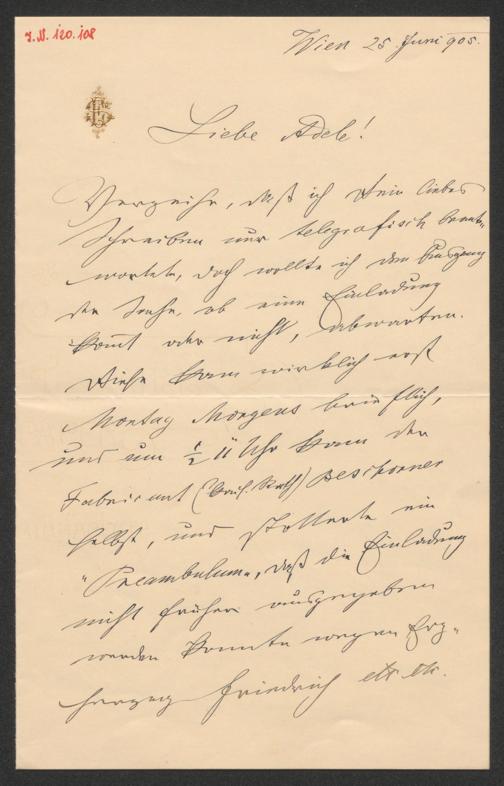 J.N. 120.108
Wien 25 Juni 905.
Liebe Adele!
Verzeihe, daß ich Dein liebes
Schreiben nur telegrafisch beant-
wortete, doch wollte ich den Ausgang
der Sache, ob eine Einladung
kom̄t oder nicht, abwarten.
Diese kam wirklich erst
Montag Morgens brieflich,
und um ½ 11 Uhr kam der
Fabricant (kais. Rath) Beschorner
selbst, und stotterte ein
"Preambulum", daß die Einladung
nicht früher ausgegeben
werden konnte wegen Erz-
herzog Friedrich etc etc.